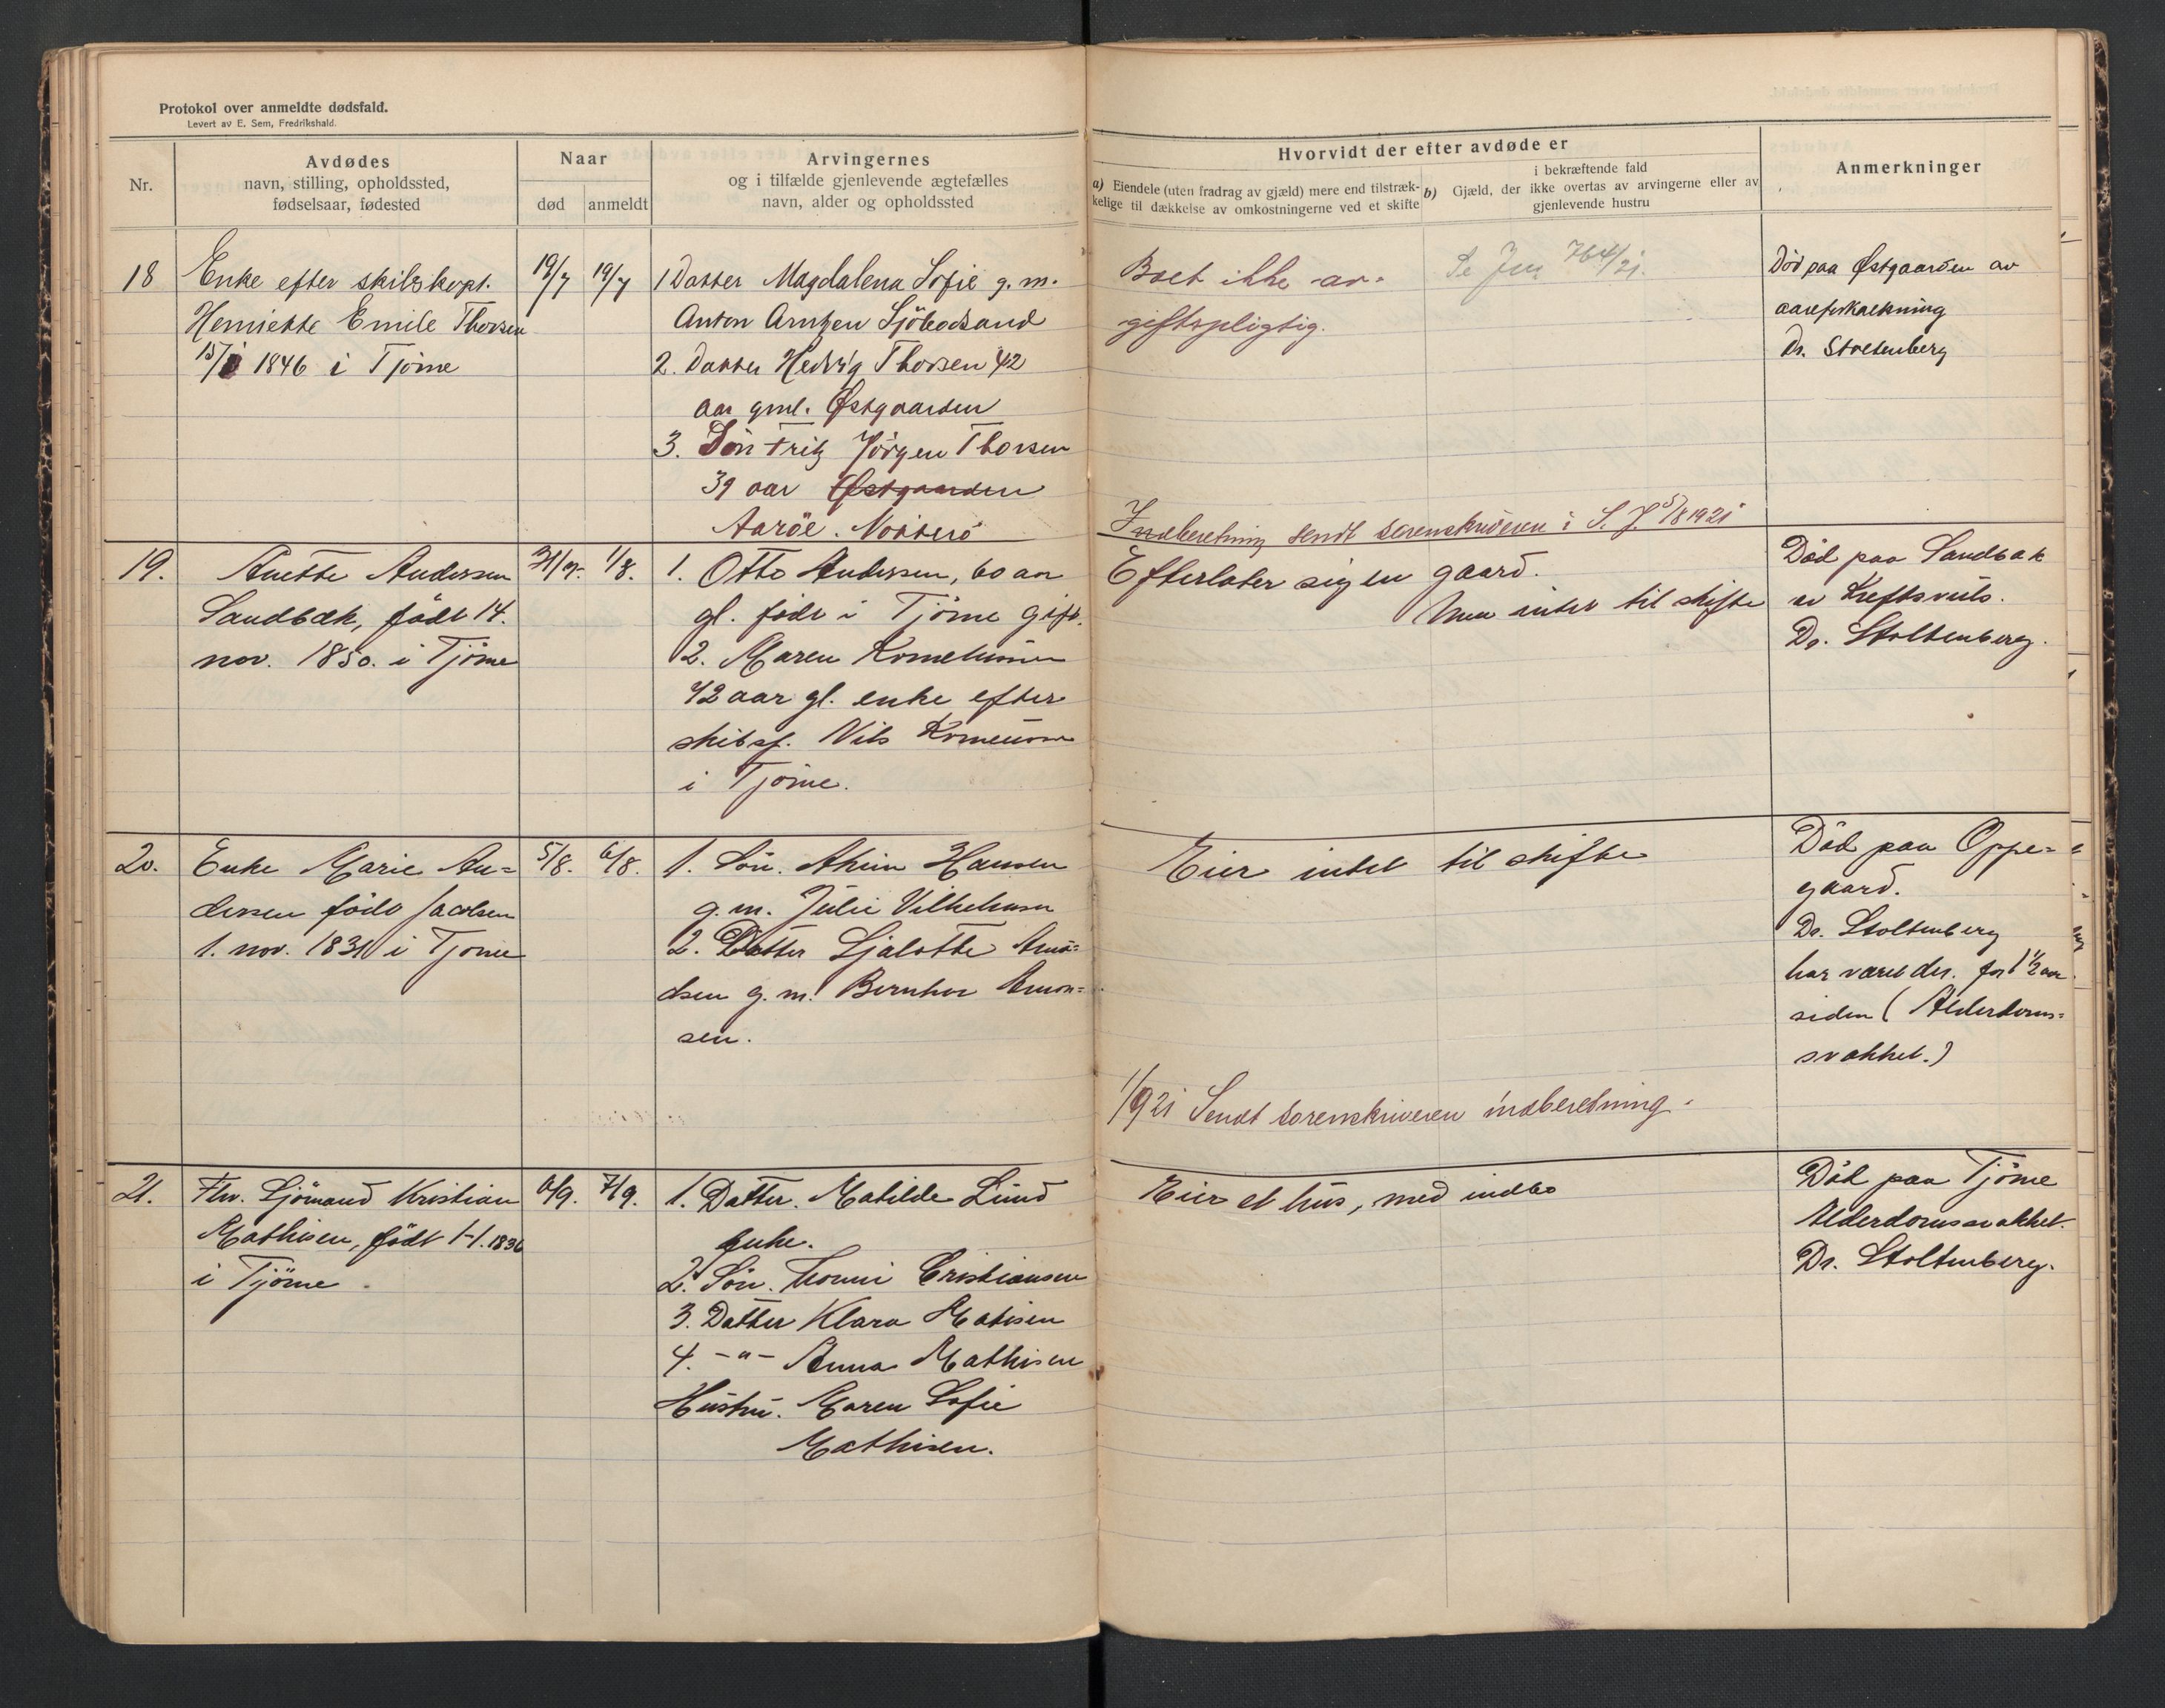 Protokol over anmeldte dødsfald.
Levert av E. Sem, Fredrikshald.
Nr.
Avdødes
navn, stilling, opholdssted,
fødselsaar, fødested
Naar
død
anmeldt
Arvingernes
og i tilfælde gjenlevende ægtefælles
navn, alder og opholdssted
Hvorvidt der efter avdøde er
a) Eiendele (uten fradrag av gjæld) mere end tilstræk-
kelige til dækkelse av omkostningerne ved et skifte
i bekræftende fald
b) Gjæld, der ikke overtas av arvingerne eller av
gjenlevende hustru
Anmerkninger
18
Enke efter skibskapt.
Henriette Emile Thorsen
1846 i Tjöme
19/7
19/7
1 Datter Magdalena Sofie g. m.
Anton Arntzen Sjöbodsand
2. Datter Hedvig Thorsen 42
aar gml. Østgaarden
3. Sön Fritz Jörgen Thorsen
39 aar Østgaarden
Aaröe. Nötterö
Boet ikke av-
giftspligtig.
Se Jur 764/21.
Död paa Østgaarden av
aareforkalkning
Dr. Stoltenberg
Indberetning sendt sorenskriveren i S. J. 5/8 1921
19.
Anette Andersen
Sandbæk, född 14.
nov. 1850. i Tjöme
1/8.
1. Otto Andersen, 60 aar
gl. födt i Tjöme gift.
2. Maren Kornelius­sen
42 aar gl. enke efter
skibsf. Nils
i Tjöme.
Efterlater sig en gaard.
Men intet til skifte
Död paa Sandbæk
av Kreftsvuls.
Dr. Stoltenberg.
20.
Enke Marie An=
dersen födt Jacobsen
1. nov. 1831 i Tjöme
5/8.
6/8.
1. Sön. Hansen
g. m. Julie Vilhelmsen
2. Datter Sjalotte Amo=
dsen g. m. Bernhor Amon=
sen.
Eier intet til skifte
Död paa Oppe=
gaard.
Dr. Stoltenberg
har været der. for 1 1/2 aar
siden (Alderdoms=
svakhet.)
1/9 21 Sendt sorenskriveren indberetning.
21.
Fhv. Sjömand Kristian
Mathisen, födt 1-1.1836
i Tjöme.
6/9.
7/9.
1. Datter. Matilde Lund
enke.
2. Sön. Cristiansen
3. Datter Klara Matisen
4. -"- Anna Mathisen
Hustru. Maren Sofie
Mathisen.
Eier et hus, med indbo
Död paa Tjöme
Alderdomssvakhet.
Dr. Stoltenberg.